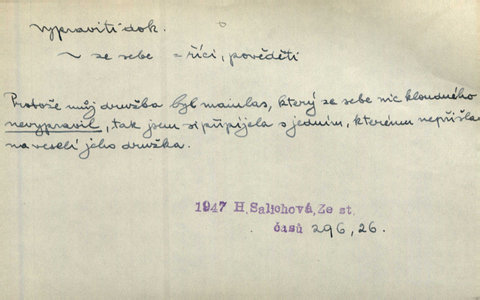 vypraviti dok.
~ ze sebe = říci, pověděti
Protože můj družba byl mamlas, který ze sebe nic kloudného
nevypravil, tak jsem si připíjela s jedním, kterému nepřišla
na veselí jeho družka.
1947 H. Salichová, Ze st.
časů 296, 26.